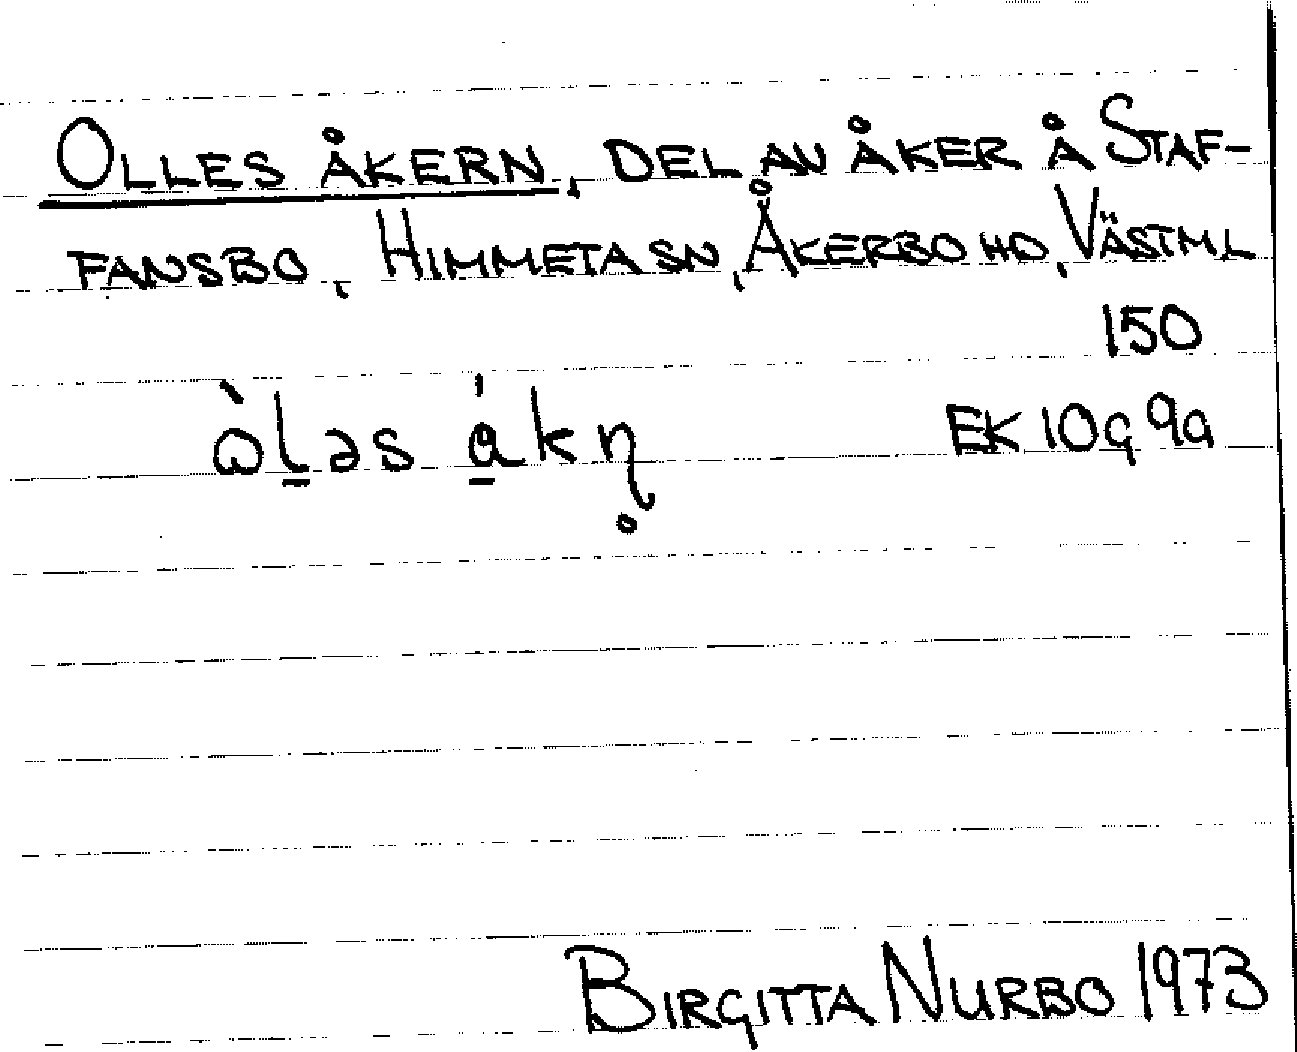 OLLES ÅKERN, DEL AV ÅKER Å STAF-
FANSBO, HIMMETA SN, ÅKERBO HD, VÄSTML
150
ὼl̠əs á̠kn̥
EK 10g 9a
BIRGITTA NURBO 1973